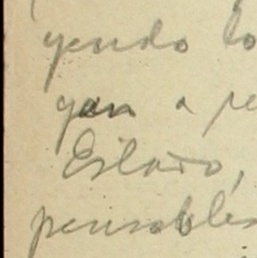 yendo lo
yan a pe
Estado,
pensables